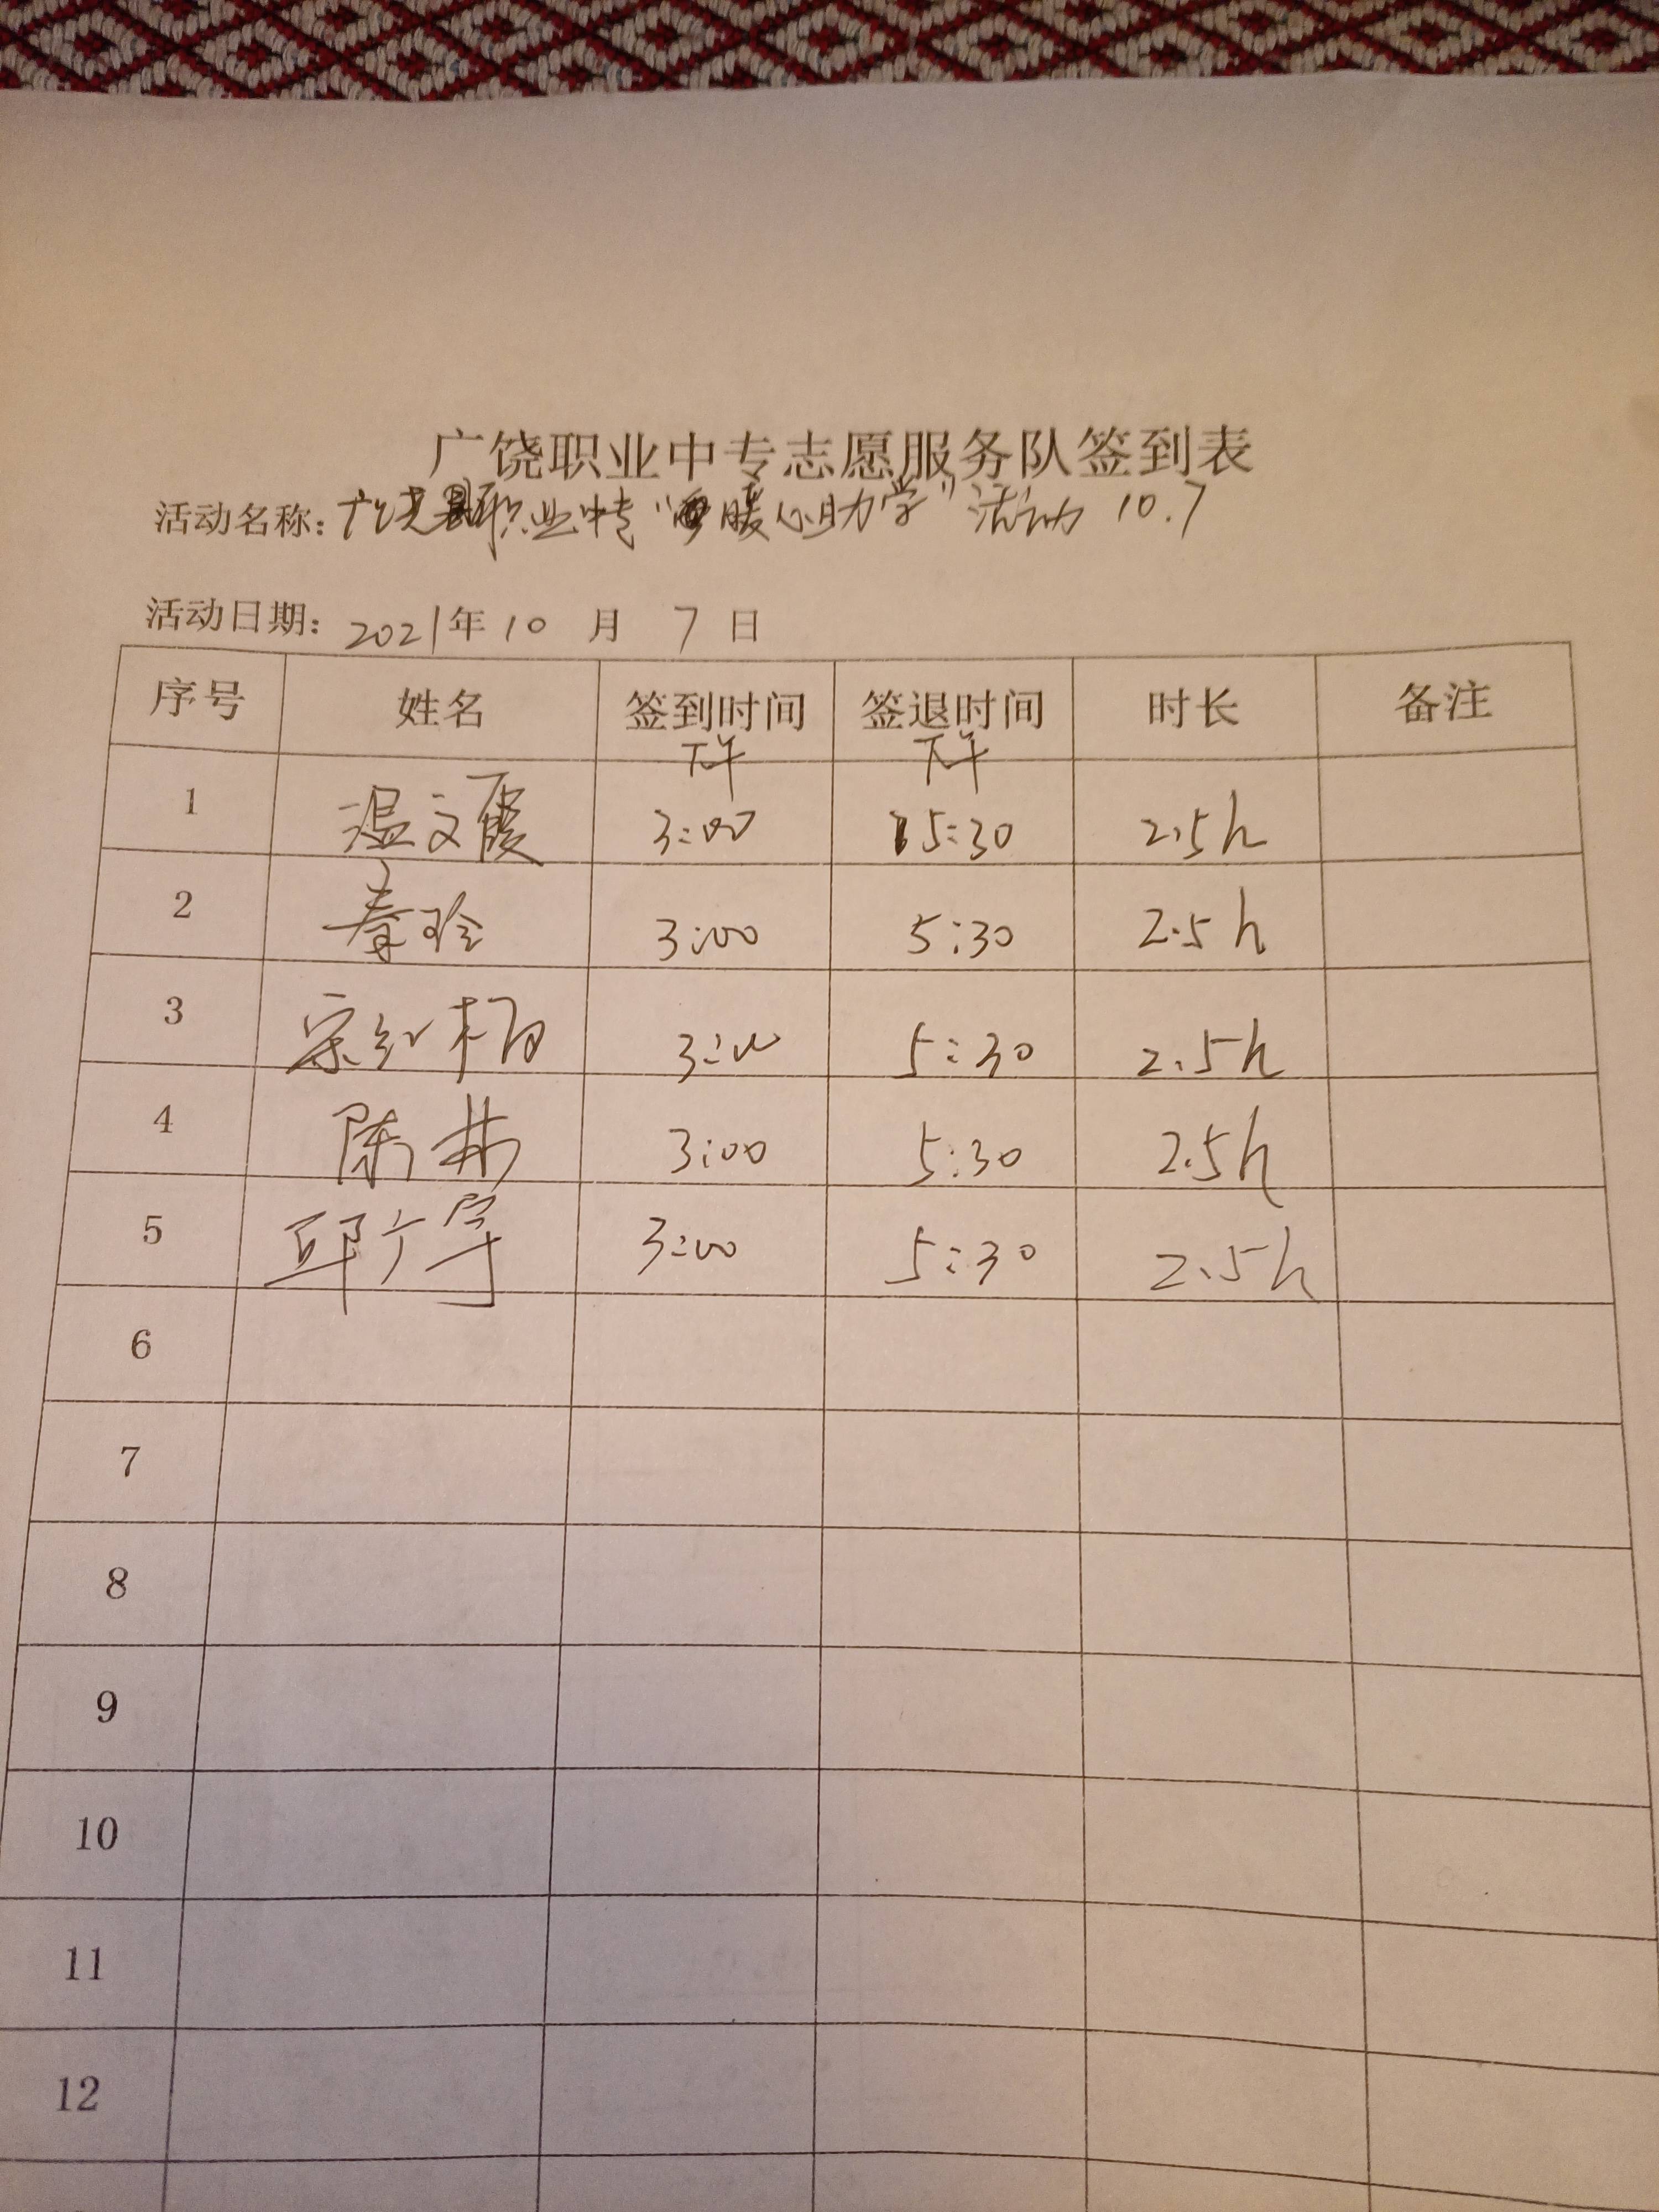 广饶职业中专志愿服务队签到表
活动名称: 广饶县职业中专“暖心助学”活动 10.7
活动日期: 2021年 10 月 7 日
序号 姓名 签到时间 签退时间 时长 备注
下午 下午
1 温文霞 3:00 5:30 2.5h
2 秦玲 3:00 5:30 2.5h
3 宗红梅 3:00 5:30 2.5h
4 陈 3:00 5:30 2.5h
5 邱广 3:00 5:30 2.5h
6
7
8
9
10
11
12